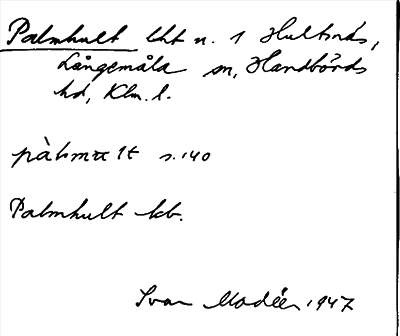 Palmhult lht n. 1 Hultsnäs,
Långemåla sn, Handbörds
hd, Klm. l.
pàlmɷlt s. 140
Palmhult kb.
Ivar Modéer 1947